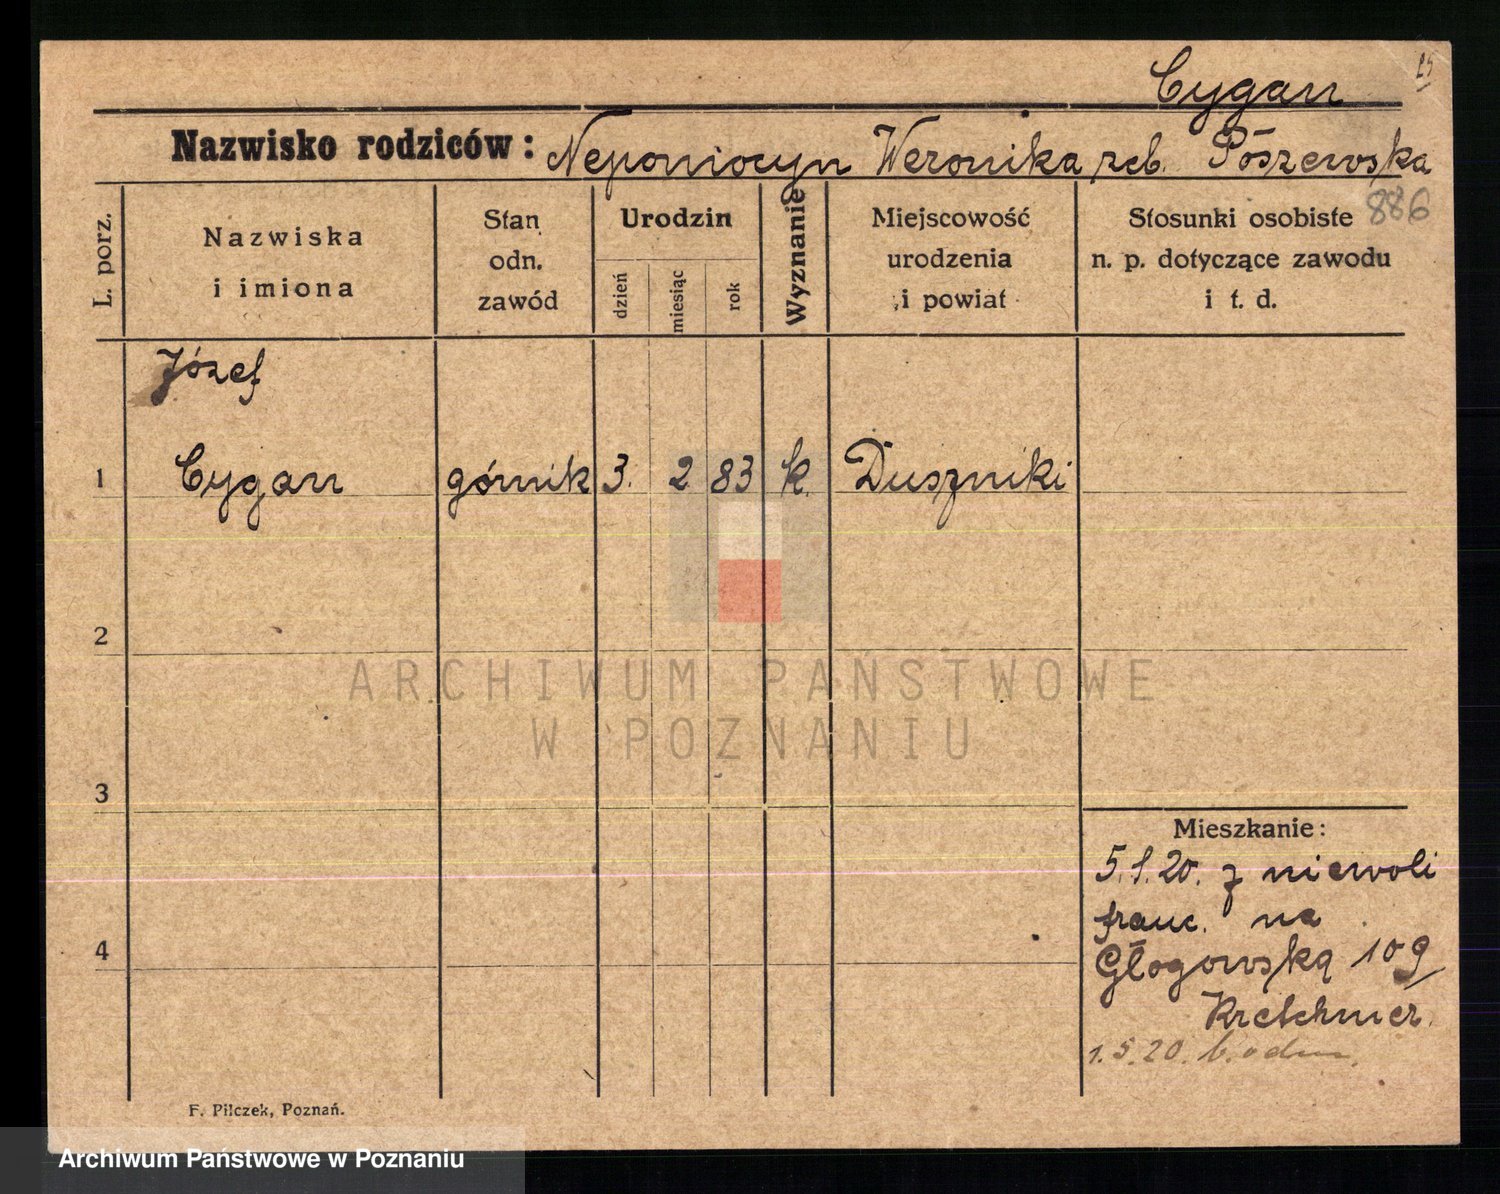 25
Cygan
Nazwisko rodziców: Neponiocyn Weronika reb. Pószewska
886
L. porz.
Nazwiska
i imiona
Stan
odn.
zawód
Urodzin
dzień
miesiąc
rok
Wyznanie
Miejscowość
urodzenia
i powiat
Stosunki osobiste
n. p. dotyczące zawodu
i t. d.
Józef
1 Cygan górnik 3. 2 83 k. Duszniki
2
ARCHIWUM PAŃSTWOWE
W POZNANIU
3
Mieszkanie:
5.1.20. z niewoli
franc. na
4 Głogowską 109
Kretchmer.
1.5.20. b. odm.
F. Pilczek, Poznań.
Archiwum Państwowe w Poznaniu